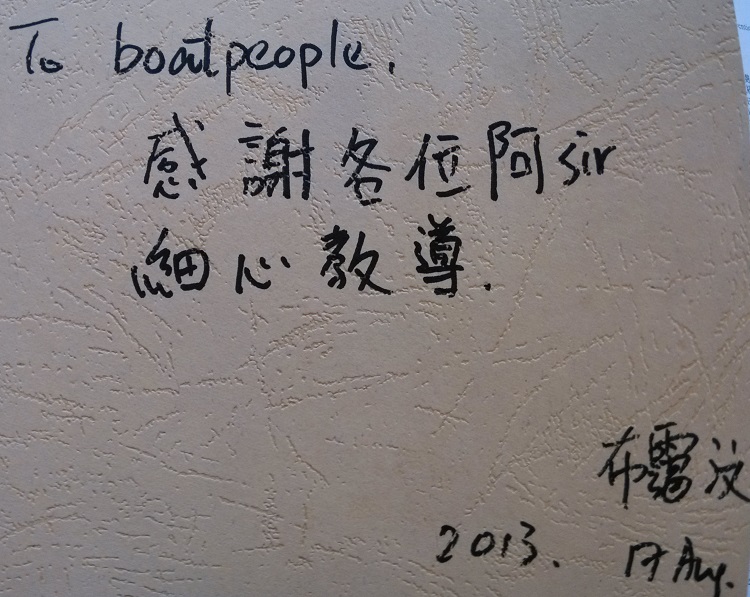 To boatpeople.
感謝各位阿sir
細心教導.
布霭汶
2013. 17 Aug.